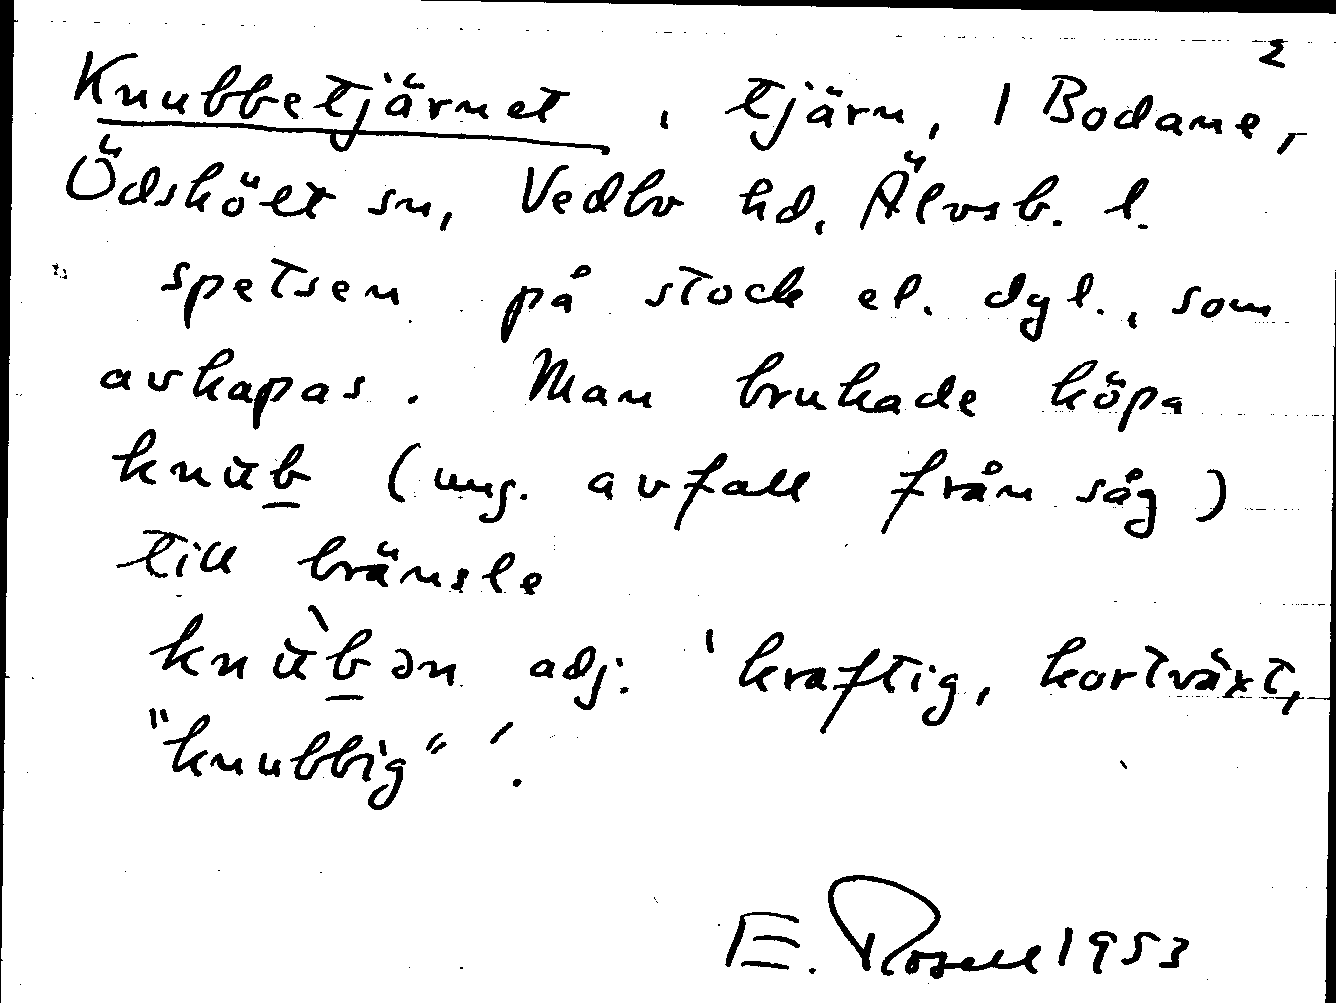 2
Knubbetjärnet, tjärn, 1 Bodane,
Ödskölt sn, Vedbo hd, Älvsb. l.
spetsen på stock el. dyl., som
avkapas. Man brukade köpa
knŭb̲ (ung. avfall från såg)
till bränsle
knŭ̀b̲ən adj. 'kraftig, kortväxt,
"knubbig"'.
E. Rosell 1953